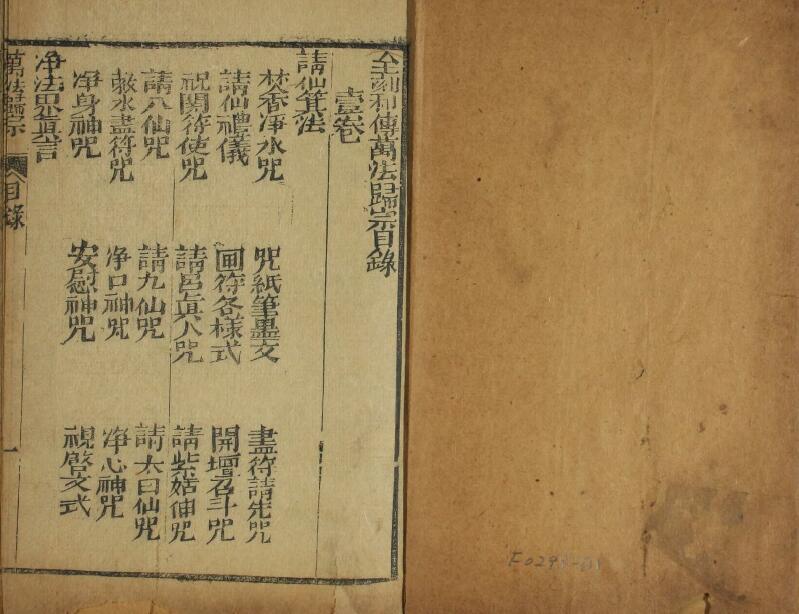 全刻秘傳萬法歸宗目錄
壹卷
請仙箕法
焚香净水咒 咒紙筆墨文 畫符請先咒
請仙禮儀 画符各様式 開壇召斗咒
祝開符使咒 請呂眞人咒 請紫姑仙咒
請八仙咒 請九仙咒 請太白仙咒
敕水畫符咒 净口神咒 净心神咒
净身神咒 安慰神咒 視啓文式
净法界眞言
萬法歸宗 目錄 一